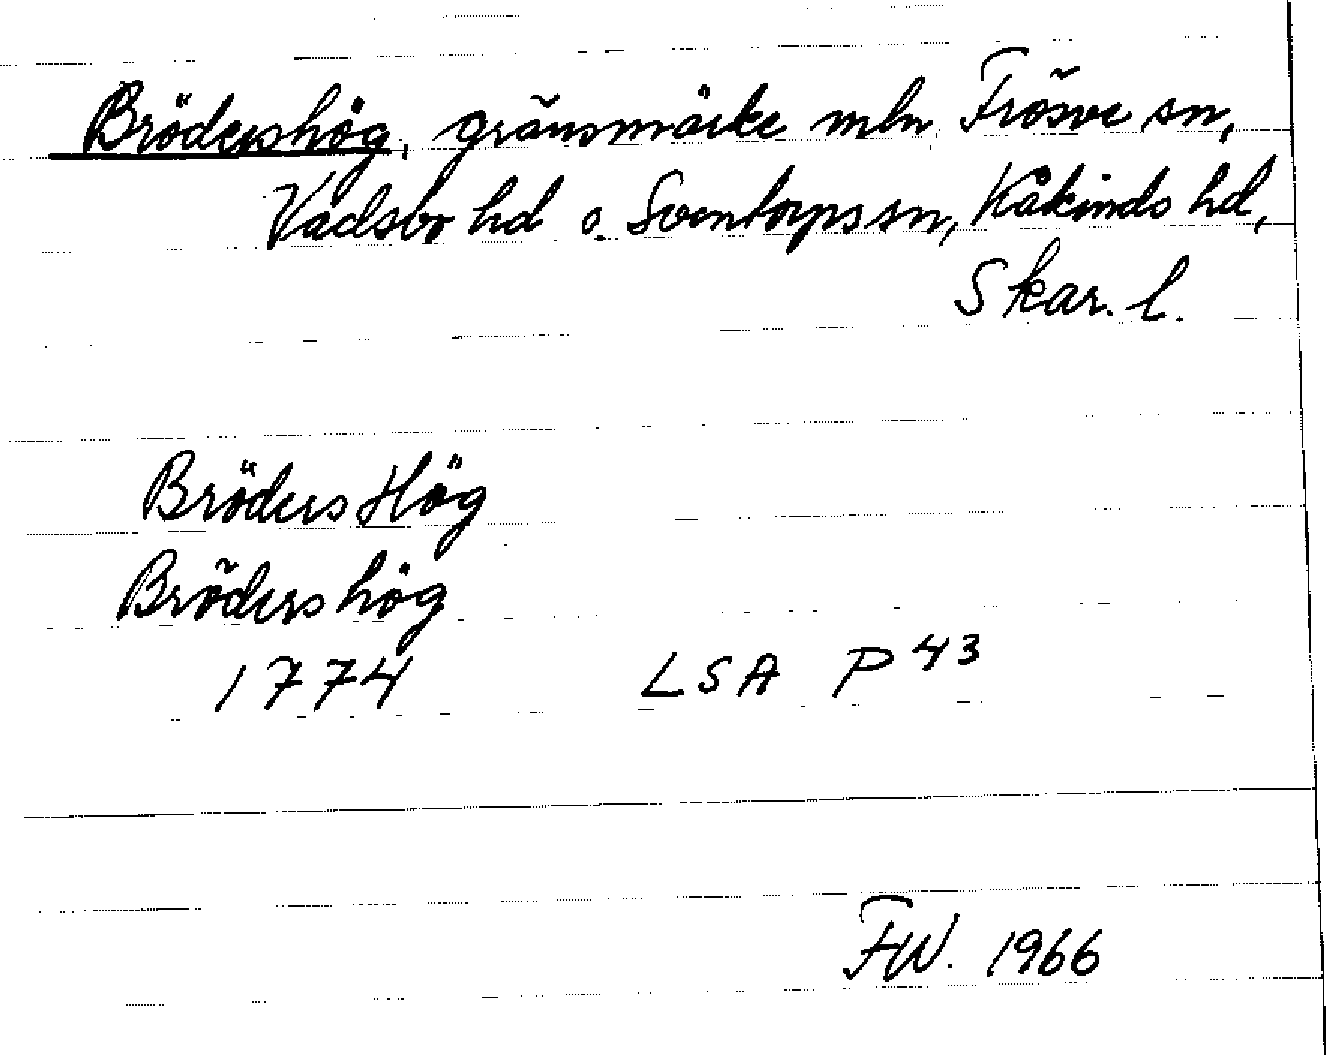 Brödershög, gränsmärke mln Frösve sn,
Vadsbo hd o. Sventorps sn, Kåkinds hd,
Skar. l.
Bröders Hög
Bröders hög
1774 LSA P 43
FW. 1966